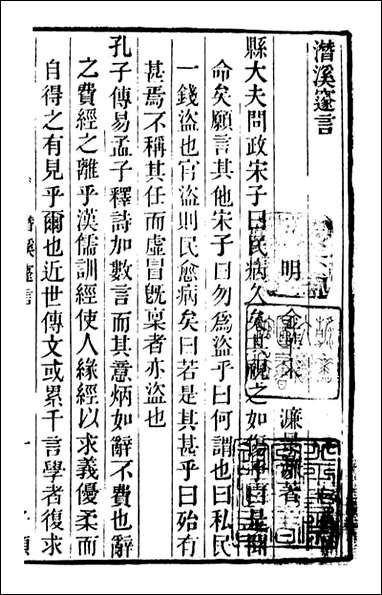 潛溪邃言
明 金華宋 濂景濂著
縣大夫問政宋子曰民病久矣其視之如傷乎曰是聞
命矣願言其他宋子曰勿為盜乎曰何謂也曰私民
一錢盜也官盜則民愈病矣曰若是其甚乎曰殆有
甚焉不稱其任而虛冒既稟者亦盜也
孔子傳易孟子釋詩加數言而其意炳如辭不費也辭
之費經之離乎漢儒訓經使人緣經以求義優柔而
自得之有見乎爾也近世傳文或累千言學者復求
潛溪邃言
一